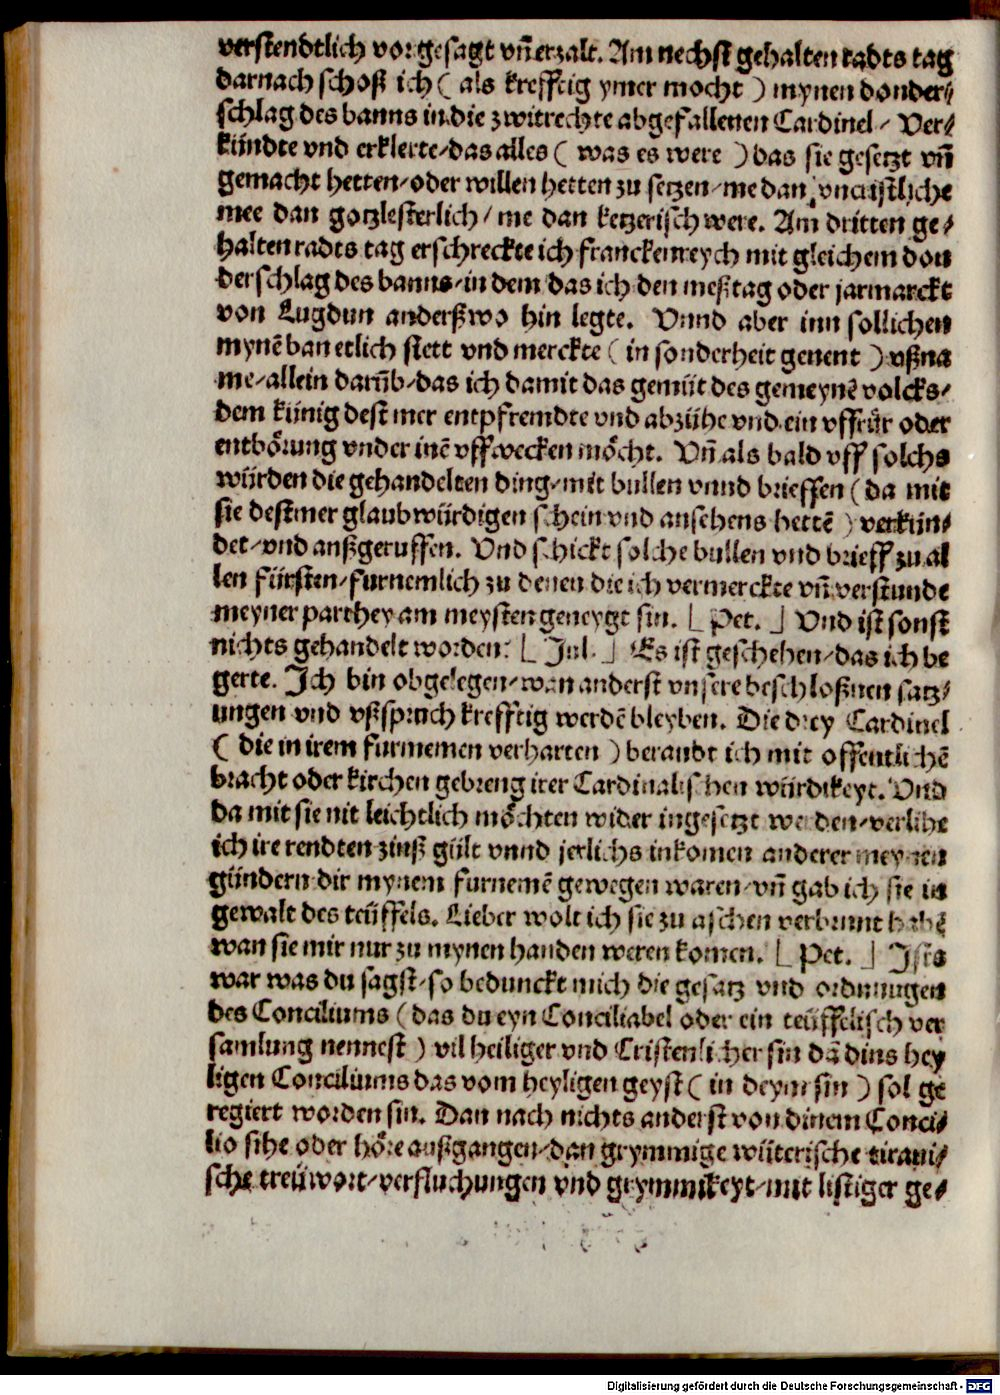 verstendtlich vorgesagt vñ erzalt. Am nechst gehalten radts tag
darnach schoß ich ( als krefftig ymer mocht ) mynen donder⸗
schlag des banns in die zwitrechte abgefallenen Cardinel / Ver⸗
kündte vnd erklerte/das alles ( was es were ) das sie gesetzt vñ
gemacht hetten/oder willen hetten zu setzen/me dan vncristliche
mee dan gotzlesterlich / me dan ketzerisch were. Am dritten ge⸗
halten radts tag erschreckte ich franckenreych mit gleichem don
derschlag des banns/in dem das ich den meßtag oder jarmarckt
von Lugdun anderßwo hin legte. Vnnd aber inn sollichen
mynē ban etlich stett vnd merckte ( in sonderheit genent ) vßna
me/allein darūb/das ich damit das gemüt des gemeynē volcks/
dem künig dest mer entpfremdte vnd abzühe vnd ein vffrůr oder
entbörung vnder inē vffwecken möcht. Vñ als bald vff solchs
würden die gehandelten ding/mit bullen vnnd brieffen ( da mit
sie destmer glaubwürdigen schein vnd ansehens hettē ) verkün⸗
det/vnd außgeruffen. Vnd schickt solche bullen vnd brieff zu al
len fürsten/furnemlich zu denen die ich vermerckte vñ verstunde
meyner parthey am meysten geneygt sin. [ Pet. ] Vnd ist sonst
nichts gehandelt worden: [ Jul. ] Es ist geschehen/das ich be
gerte. Ich bin obgelegen/wan anderst vnsere beschloßnen satz⸗
ungen vnd vßspruch krefftig werdē bleyben. Die drey Cardinel
( die in irem furnemen verharten ) beraubt ich mit offentlichē
bracht oder kirchen gebreng irer Cardinalischen würdikeyt. Vnd
da mit sie nit leichtlich möchten wider ingesetzt werden/verlihe
ich ire rendten zinß gült vnnd jerlichs inkomen anderer meynen
gündern dir mynem furnemē gewegen waren/vñ gab ich sie in
gewalt des teüffels. Lieber wolt ich sie zu aschen verbrunt habē
wan sie mir nur zu mynen handen weren komen. [ Pet. ] Ists
war was du sagst/so bedunckt mich die gesatz vnd ordnungen
des Conciliums ( das du eyn Conciliabel oder ein teüffelisch ver
samlung nennest ) vil heiliger vnd Cristenlicher sin dā dins hey
ligen Conciliums das vom heyligen geyst ( in deym sin ) sol ge
regiert worden sin. Dan nach nichts anderst von dinem Conci⸗
lio sihe oder höre außgangen/dan grymmige wüterische tirani⸗
sche treüwort/verfluchungen vnd grymmikeyt/mit listiger ge⸗
Digitalisierung gefördert durch die Deutsche Forschungsgemeinschaft - DFG